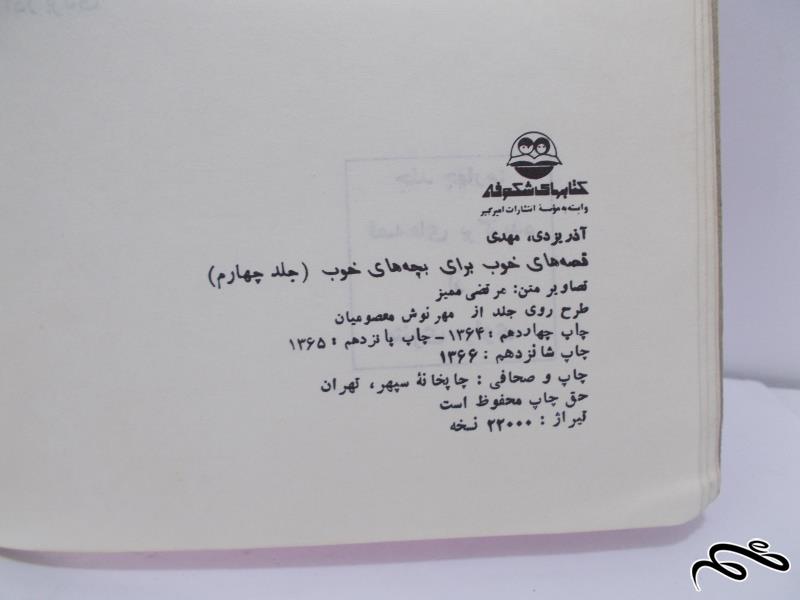 کتابهای شکوفه
وابسته به مؤسسهٔ انتشارات امیرکبیر
آذریزدی، مهدی
قصه‌های خوب برای بچه‌های خوب (جلد چهارم)
تصاویر متن: مرتضی ممیز
طرح روی جلد از مهرنوش معصومیان
چاپ چهاردهم: ۱۳۶۴ - چاپ پانزدهم: ۱۳۶۵
چاپ شانزدهم: ۱۳۶۶
چاپ و صحافی: چاپخانهٔ سپهر، تهران
حق چاپ محفوظ است
تیراژ: ۲۲۰۰۰ نسخه